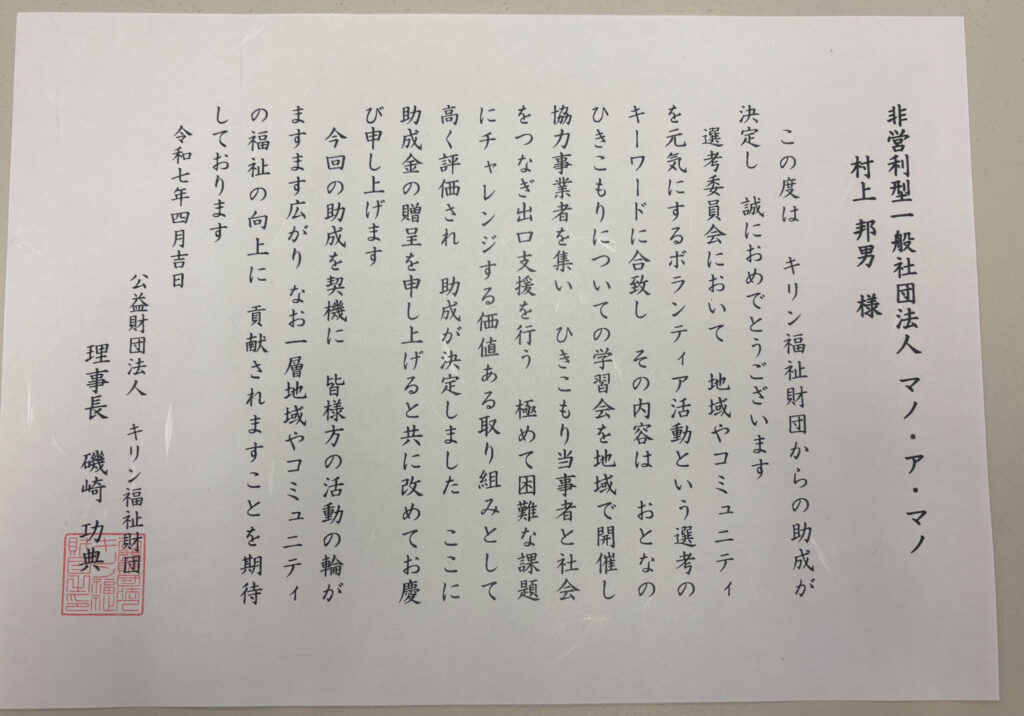 非営利型一般社団法人 マノ・ア・マノ
村上 邦男 様
この度は キリン福祉財団からの助成が
決定し 誠におめでとうございます
選考委員会において 地域やコミュニティ
を元気にするボランティア活動という選考の
キーワードに合致し その内容は おとなの
ひきこもりについての学習会を地域で開催し
協力事業者を集い ひきこもり当事者と社会
をつなぎ出口支援を行う 極めて困難な課題
にチャレンジする価値ある取り組みとして
高く評価され 助成が決定しました ここに
助成金の贈呈を申し上げると共に改めてお慶
び申し上げます
今回の助成を契機に 皆様方の活動の輪が
ますます広がり なお一層地域やコミュニティ
の福祉の向上に 貢献されますことを期待
しております
令和七年四月吉日
公益財団法人 キリン福祉財団
理事長 磯崎 功典